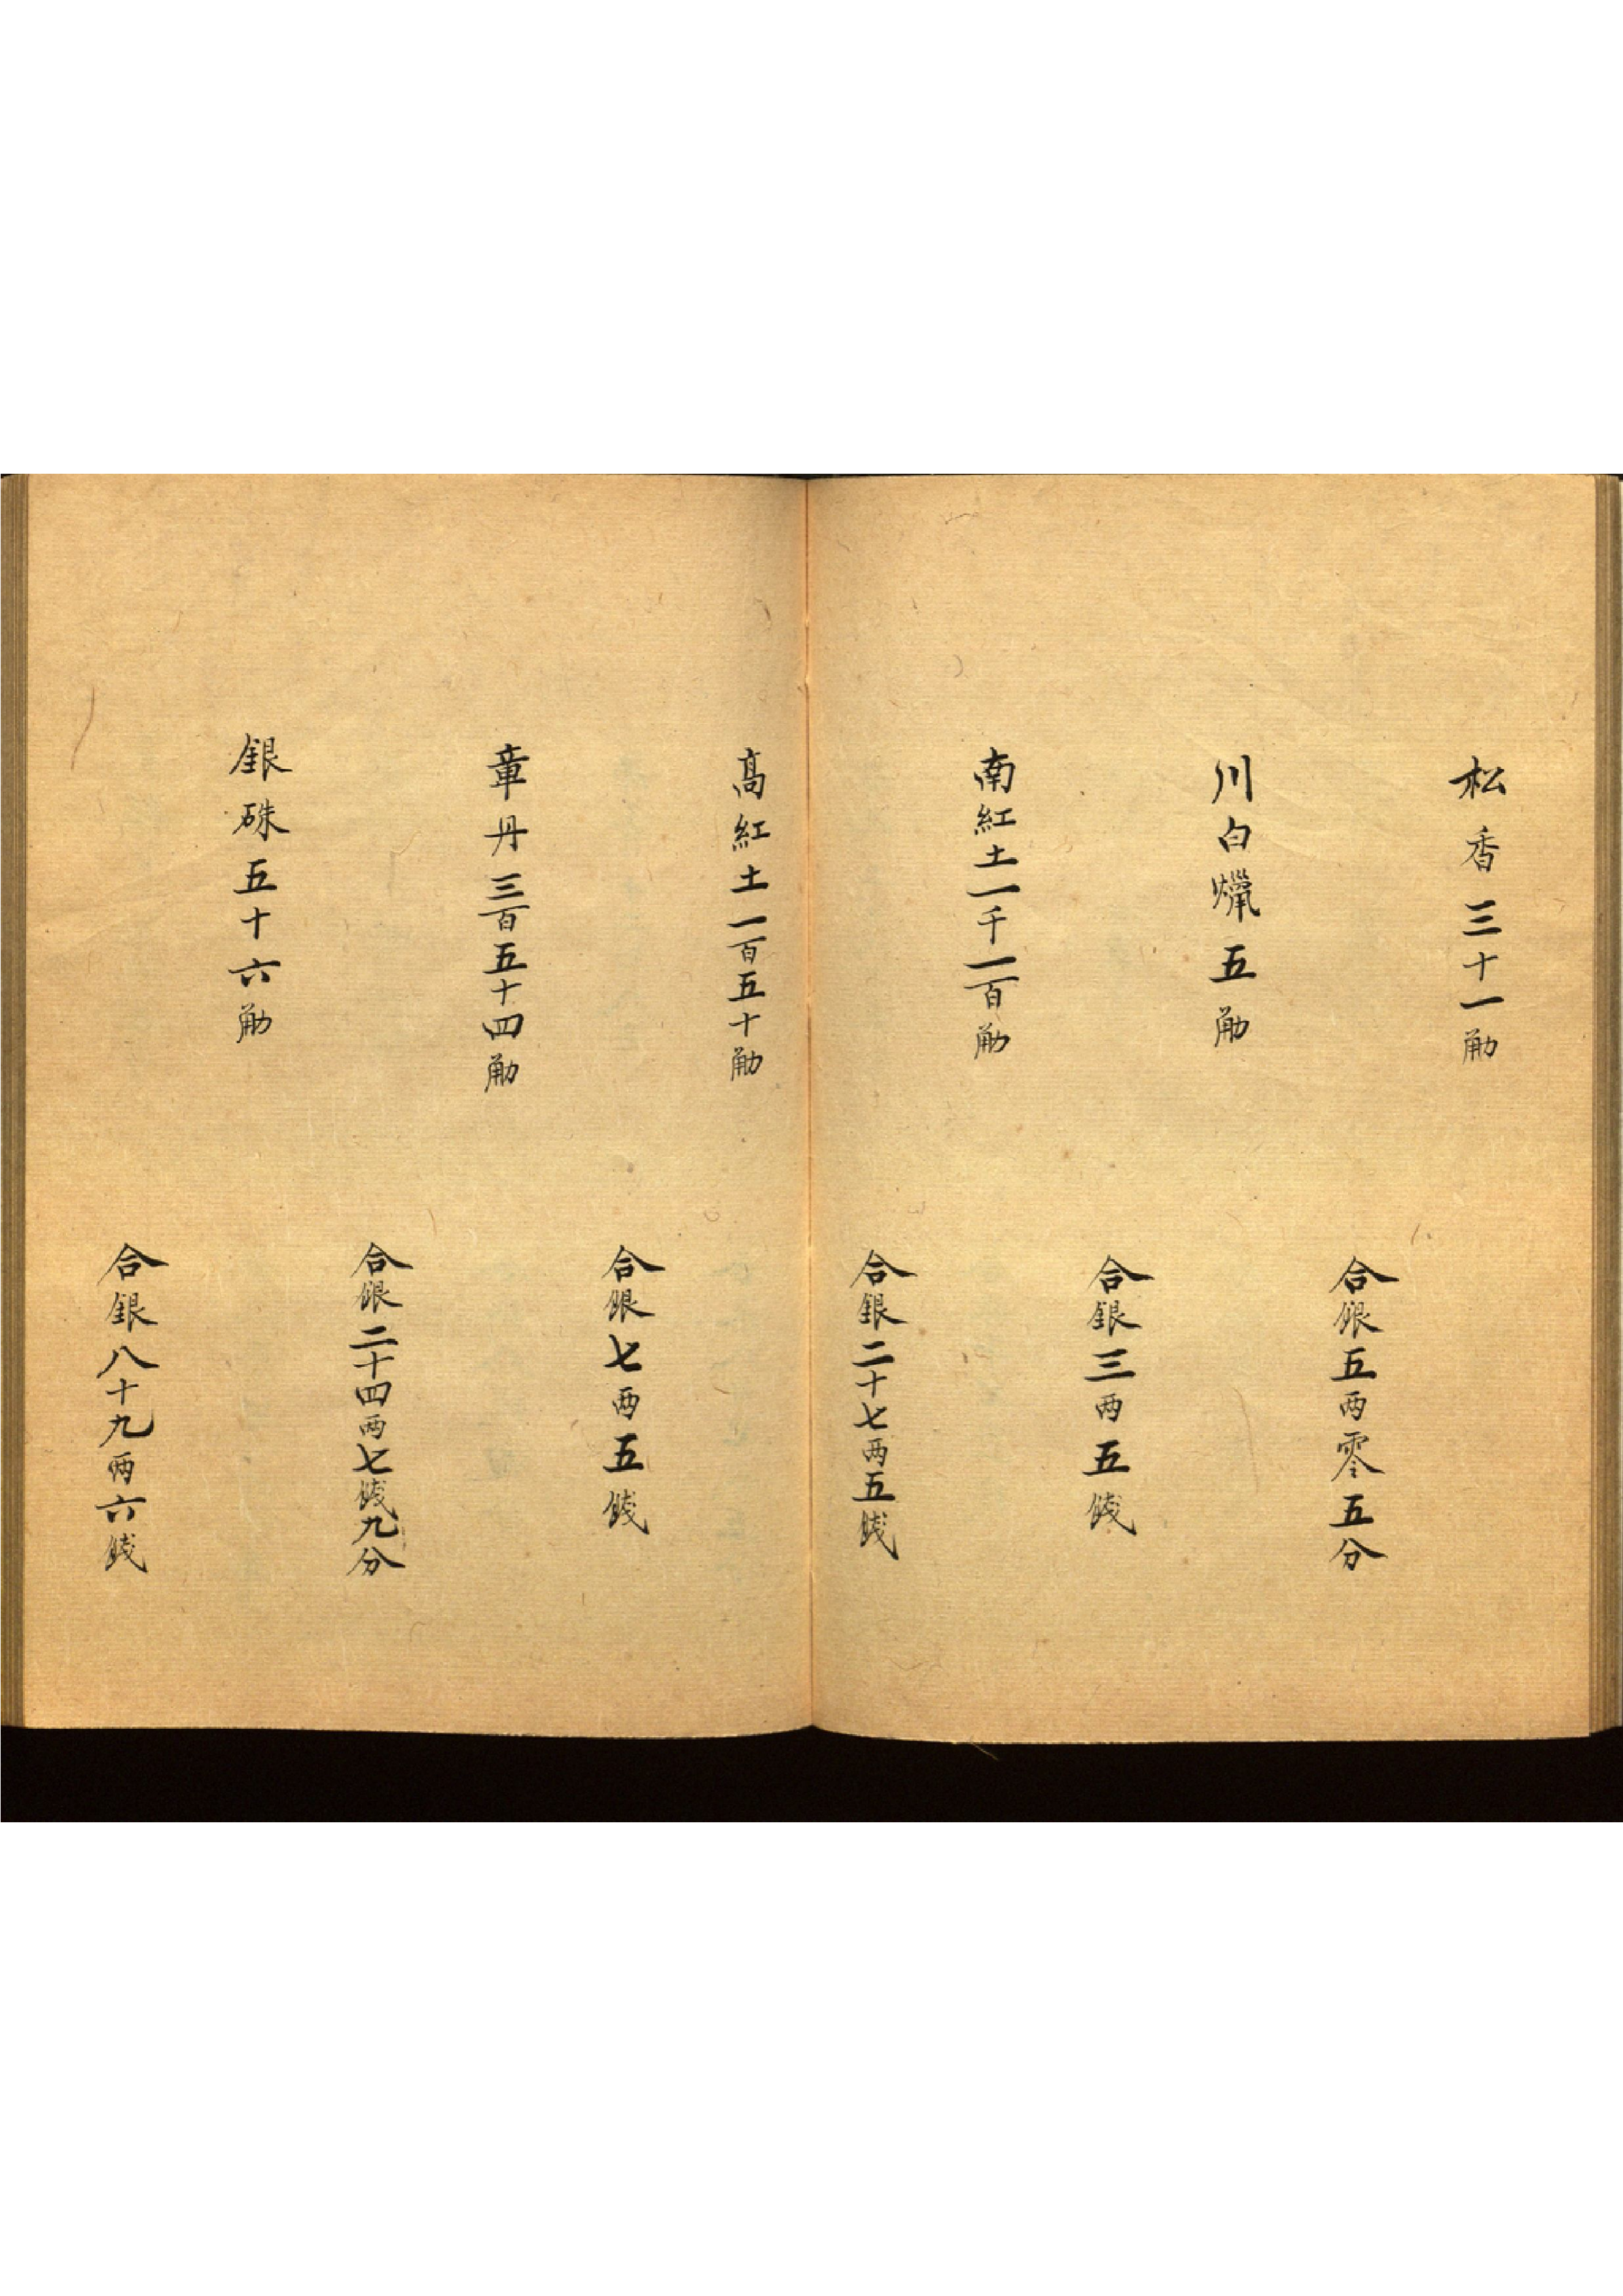 松香三十一觔
合銀五両零五分
川白爉五觔
合銀三両五錢
南紅土一千一百觔
合銀二十七両五錢
髙紅土一百五十觔
合銀七両五錢
章丹三百五十四觔
合銀二十四両七錢九分
銀硃五十六觔
合銀八十九両六錢